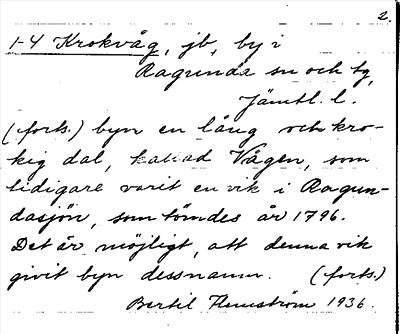 2.
1-4 Krokvåg, jb, by i
Ragunda sn och tg,
Jämtl. l.
(forts.) byn en lång och kro-
kig dal, kallad Vågen, som
tidigare varit en vik i Ragun-
dasjön, som tömdes år 1796.
Det är möjligt, att denna vik
givit byn dess namn. (forts.)
Bertil Flemström 1936.